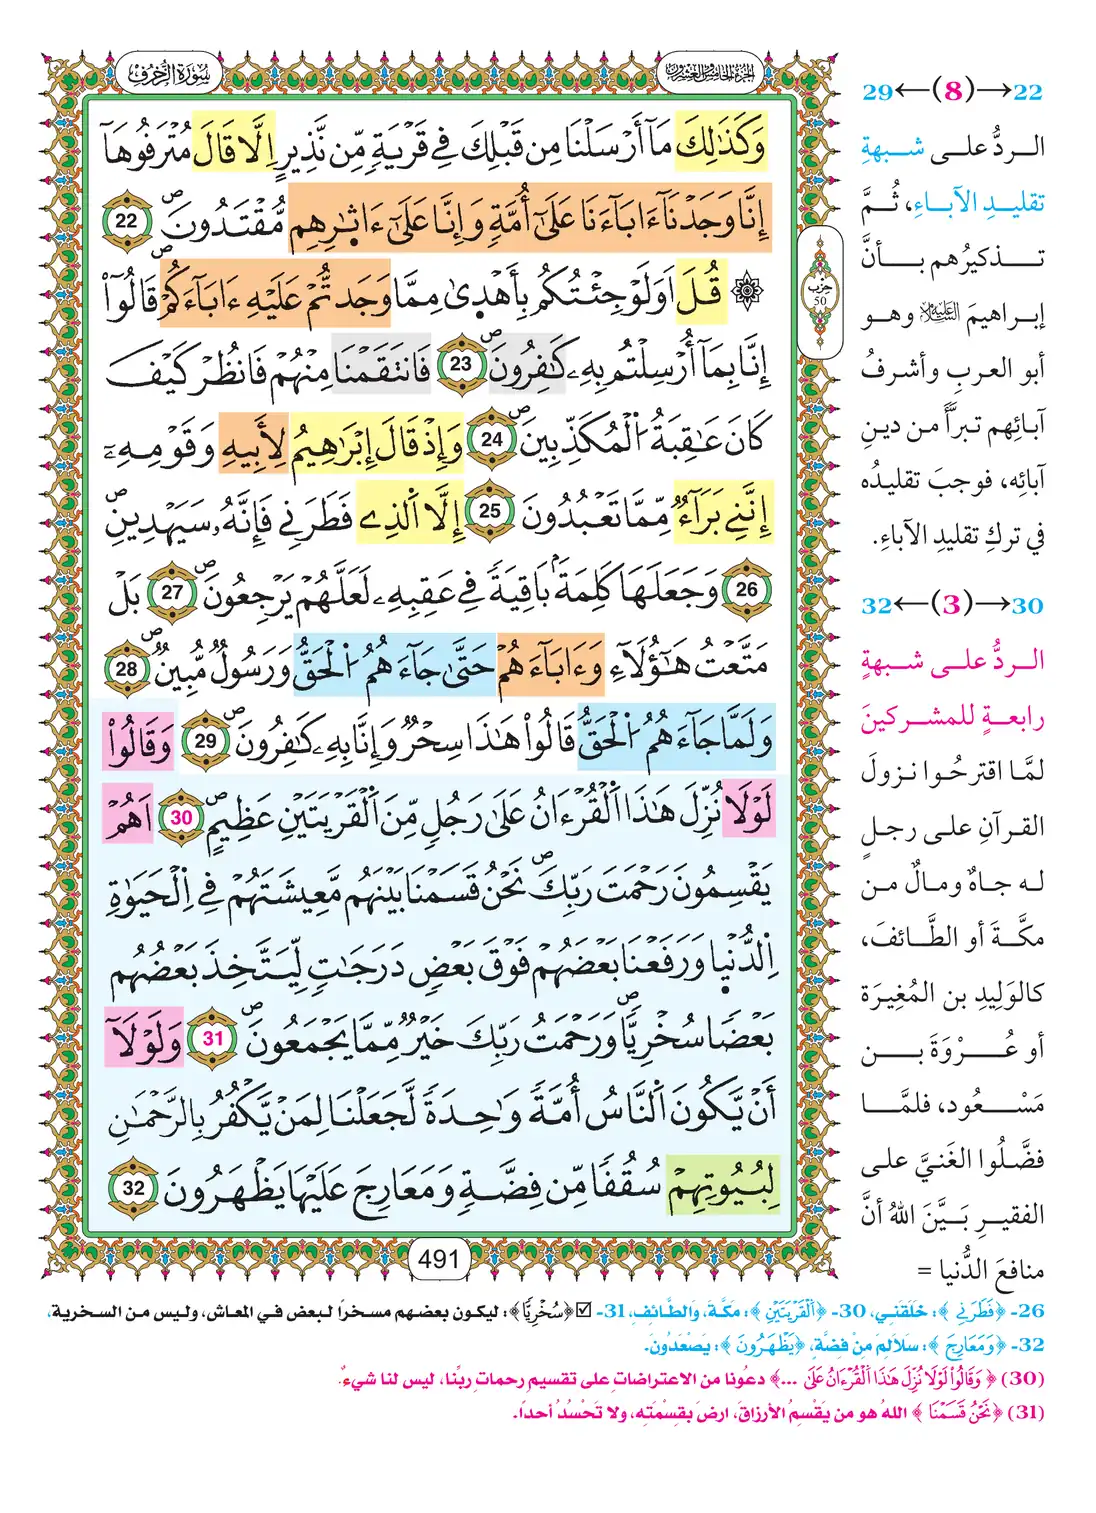 سُورَةُ الزُّخْرُفِ
الجزء الخامس والعشرون
وَكَذَٰلِكَ مَآ أَرْسَلْنَا مِن قَبْلِكَ فِے قَرْيَةٍ مِّن نَّذِيرٍ اِلَّا قَالَ مُتْرَفُوهَآ
إِنَّا وَجَدْنَآ ءَابَآءَنَا عَلَىٰٓ أُمَّةٍ وَإِنَّا عَلَىٰٓ ءَاثَٰرِهِم مُّقْتَدُونَ 22
۞ قُلَ اَوَلَوْ جِئْتُكُم بِأَهْدَىٰ مِمَّا وَجَدتُّمْ عَلَيْهِ ءَابَآءَكُمْ قَالُوٓاْ
إِنَّا بِمَآ أُرْسِلْتُم بِهِۦ كَٰفِرُونَ 23 فَانتَقَمْنَا مِنْهُمْ فَانظُرْ كَيْفَ
كَانَ عَٰقِبَةُ اُ۬لْمُكَذِّبِينَ 24 وَإِذْ قَالَ إِبْرَٰهِيمُ لِأَبِيهِ وَقَوْمِهِۦٓ
إِنَّنِے بَرَآءٌ مِّمَّا تَعْبُدُونَ 25 إِلَّا اَ۬لذِے فَطَرَنِے فَإِنَّهُۥ سَيَهْدِينِ
26 وَجَعَلَهَا كَلِمَةَۢ بَاقِيَةً فِے عَقِبِهِۦ لَعَلَّهُمْ يَرْجِعُونَ 27 بَلْ
مَتَّعْتُ هَٰٓؤُلَآءِ وَءَابَآءَهُمْ حَتَّىٰ جَآءَهُمُ اُ۬لْحَقُّ وَرَسُولٌ مُّبِينٌ 28
وَلَمَّا جَآءَهُمُ اُ۬لْحَقُّ قَالُواْ هَٰذَا سِحْرٌ وَإِنَّا بِهِۦ كَٰفِرُونَ 29 وَقَالُواْ
لَوْلَا نُزِّلَ هَٰذَا اَ۬لْقُرْءَانُ عَلَىٰ رَجُلٍ مِّنَ اَ۬لْقَرْيَتَيْنِ عَظِيمٍ 30 اَهُمْ
يَقْسِمُونَ رَحْمَتَ رَبِّكَ نَحْنُ قَسَمْنَا بَيْنَهُم مَّعِيشَتَهُمْ فِے اِ۬لْحَيَوٰةِ
اِ۬لدُّنْيَا وَرَفَعْنَا بَعْضَهُمْ فَوْقَ بَعْضٍ دَرَجَٰتٍ لِّيَتَّخِذَ بَعْضُهُم
بَعْضًا سُخْرِيًّا وَرَحْمَتُ رَبِّكَ خَيْرٌ مِّمَّا يَجْمَعُونَ 31 وَلَوْلَآ
أَنْ يَّكُونَ اَ۬لنَّاسُ أُمَّةً وَٰحِدَةً لَّجَعَلْنَا لِمَنْ يَّكْفُرُ بِالرَّحْمَٰنِ
لِبُيُوتِهِمْ سُقُفًا مِّن فِضَّةٍ وَمَعَارِجَ عَلَيْهَا يَظْهَرُونَ 32
حزب
50
491
22→(8)←29
الردُّ على شبهةِ
تقليدِ الآباءِ، ثُمَّ
تذكيرُهم بأنَّ
إبراهيمَ عَلَيْهِ السَّلَامُ وهو
أبو العربِ وأشرفُ
آبائِهم تبرَّأَ من دينِ
آبائِه، فوجبَ تقليدُه
في تركِ تقليدِ الآباءِ.
30→(3)←32
الردُّ على شبهةٍ
رابعةٍ للمشركينَ
لمَّا اقترحُوا نزولَ
القرآنِ على رجلٍ
له جاهٌ ومالٌ من
مكَّةَ أو الطَّائفَ،
كالوَلِيدِ بن المُغِيرَة
أو عُرْوَةَ بن
مَسْعُود، فلمَّا
فضَّلُوا الغَنيَّ على
الفقيرِ بَيَّنَ اللهُ أنَّ
منافعَ الدُّنيا =
26- ﴿فَطَرَنِے﴾: خَلَقَني، 30- ﴿اَ۬لْقَرْيَتَيْنِ﴾: مَكَّةَ، وَالطَّائِفِ، 31- ☑ ﴿سُخْرِيًّا﴾: ليكون بعضهم مسخرًا لبعض في المعاش، وليس من السخرية،
32- ﴿وَمَعَارِجَ﴾: سَلَالِمَ مِنْ فِضَّةٍ، ﴿يَظْهَرُونَ﴾: يَصْعَدُونَ.
(30) ﴿وَقَالُواْ لَوْلَا نُزِّلَ هَٰذَا اَ۬لْقُرْءَانُ عَلَىٰ ...﴾ دعُونا من الاعتراضاتِ على تقسيمِ رحماتِ ربِّنا، ليس لنا شيءٌ.
(31) ﴿نَحْنُ قَسَمْنَا﴾ اللهُ هو من يَقْسِمُ الأرزاقَ، ارضَ بقِسْمَتِه، ولا تَحْسُدْ أحدًا.